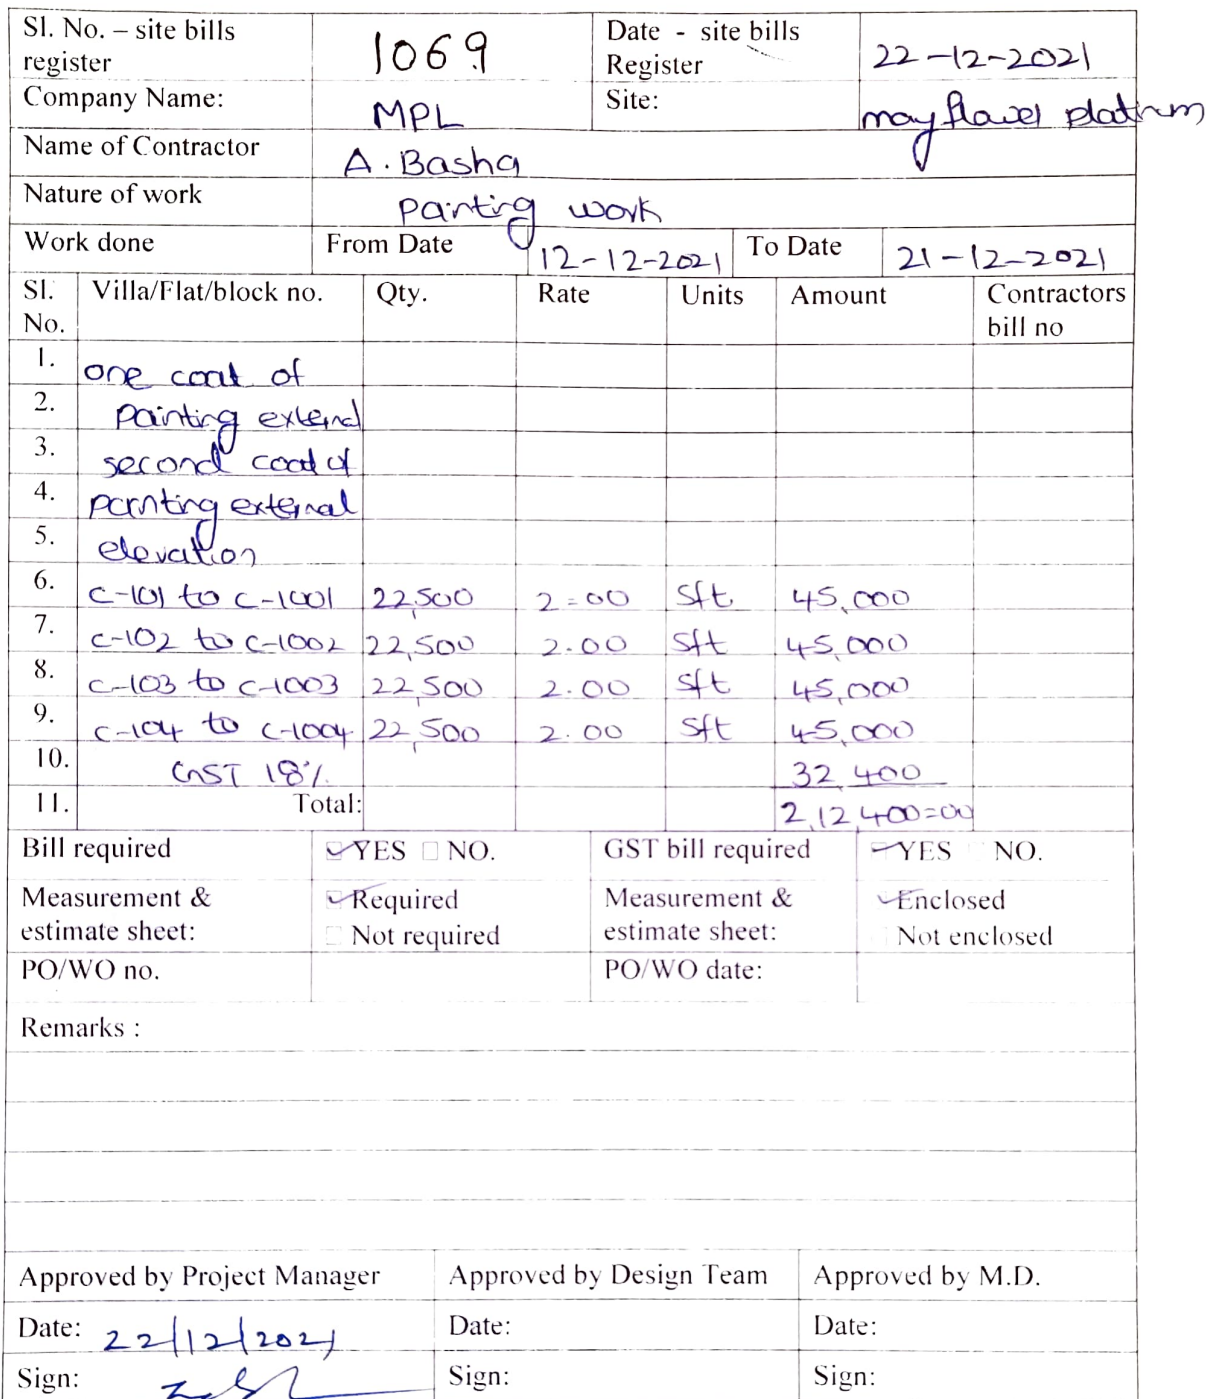 Sl. No. – site bills register 1069 Date - site bills Register 22-12-2021
Company Name: MPL Site: mayflower platinum
Name of Contractor A. Basha
Nature of work Painting work
Work done From Date 12-12-2021 To Date 21-12-2021
Sl. No. Villa/Flat/block no. Qty. Rate Units Amount Contractors bill no
1. one coat of
2. Painting external
3. second coat of
4. painting external
5. elevation
6. C-101 to C-1001 22,500 2=00 Sft 45,000
7. C-102 to C-1002 22,500 2.00 Sft 45,000
8. C-103 to C-1003 22,500 2.00 Sft 45,000
9. C-104 to C-1004 22,500 2.00 Sft 45,000
10. GST 18% 32,400
11. Total: 2,12,400=00
Bill required YES NO. GST bill required YES NO.
Measurement & estimate sheet: Required Not required Measurement & estimate sheet: Enclosed Not enclosed
PO/WO no. PO/WO date:
Remarks :
Approved by Project Manager Approved by Design Team Approved by M.D.
Date: 22/12/2021 Date: Date:
Sign: Sign: Sign: